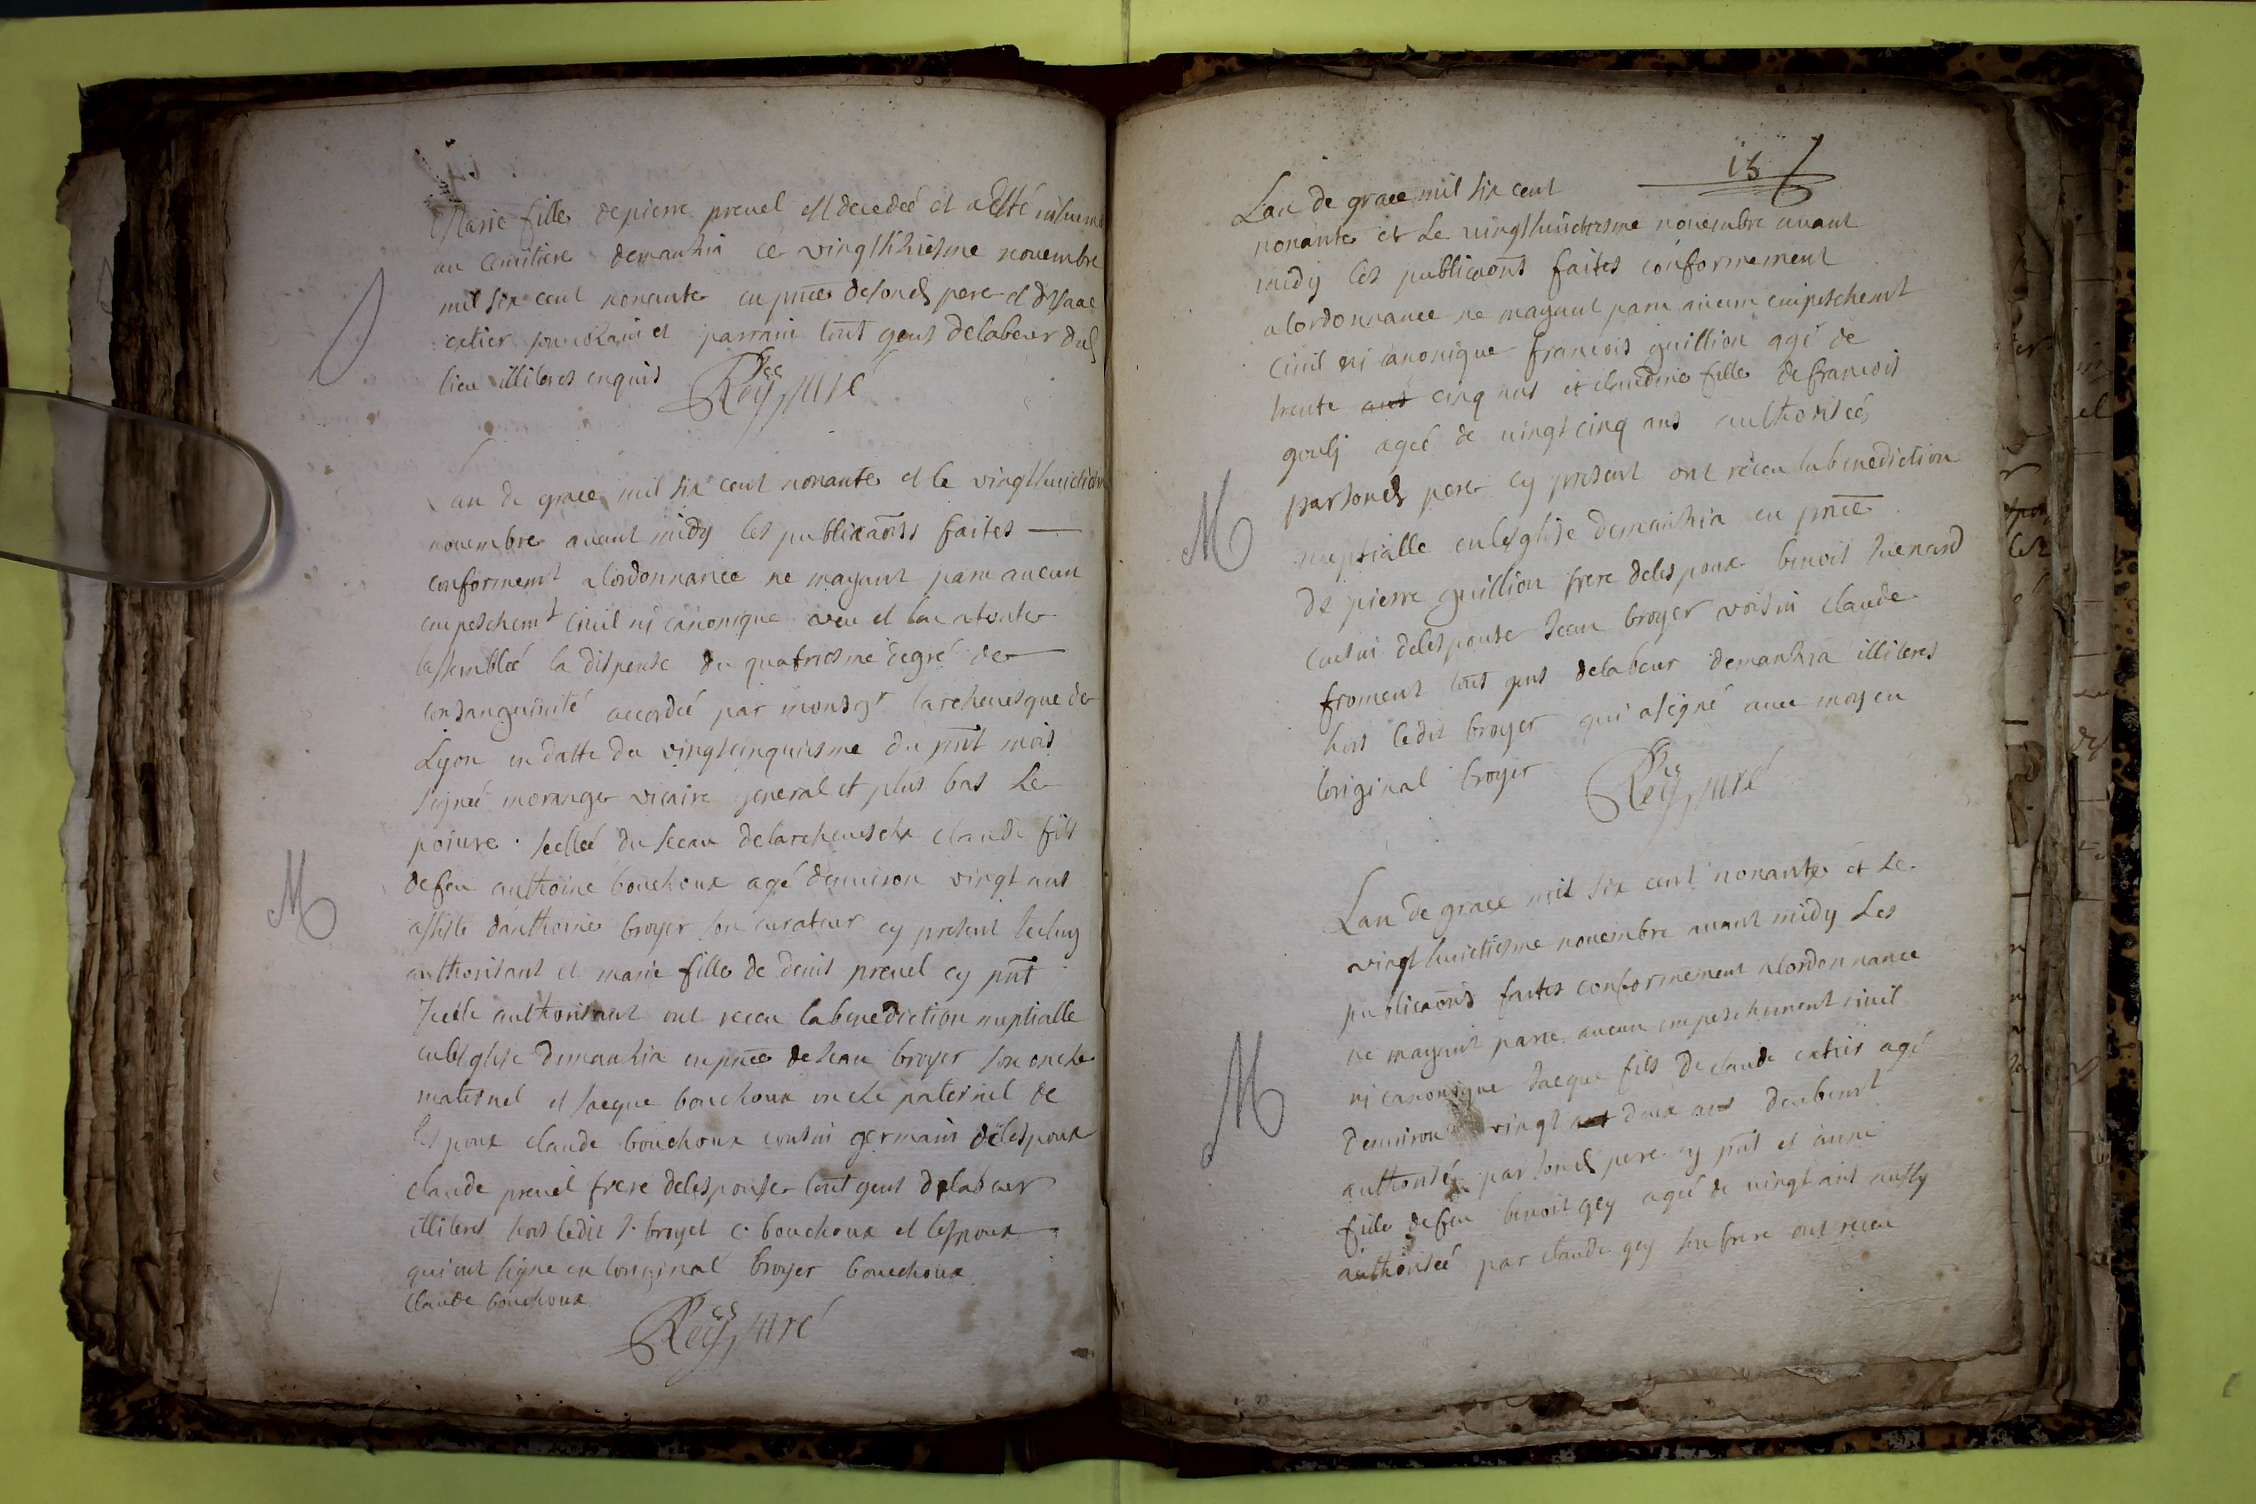 Marie fille de pierre prevel est decedeé et a esté inhumé
au cimitiere demanhia ce vingthuiesme novembre
mil six cent nonante en pnce desond pere et
cretier son et parrain tout gens delabeur dud
lieu illiteres enquis Rey curé
Lan de grace mil six cent nonante et le vingthuictiesm
novembre avant midy les publicaõns faites
conformemt alordonnance ne mayant paru aucun
empeschemt civil ni canonique veu et
lassembleé la dispense du quatriesme degré de
consanguinité accordeé par monsgr larchevesque de
Lyon en datte du vingtcinquiesme du pñt mois
signeé moranger vicaire general et plus bas Le
poivre selleé du sceau delarchevesché claude fils
defeu anthoine bouchoux agé denviron vingt ans
assisté danthoine broyer son curateur cy present Iceluy
authorisant et marie fille de denis prevel cy pñt
Icelle authorisant ont receu la benediction nuptialle
enlesglise demanhia en pñce de Jean broyer son oncle
maternel et Jacque bouchoux oncle paternel de
lespoux claude bouchoux cousin germain delespoux
claude prevel frere delespouse tout gens delabeur
illiteres hors ledit J. broyer c. bouchoux et lespoux
qui ont signé en loriginal broyer bouchoux
claude bouchoux
Rey curé
M
13
Lan de grace mil six cent
nonante et Le vingthuictiesme novembre avant
midy les publicaõns faites conformement
alordonnance ne mayant paru aucun empeschemt
civil ni canonique francois guillion agé de
trente ans cinq ans et claudine fille de francois
gouly ageé de vingt cinq ans authoriseé
parsond pere cy present ont receu la benediction
nuptialle enlesglise demanhia en pñce
de pierre guillion frere delespoux benoit
cousin delespouse Jean broyer voisin claude
froment tout gens delabeur demanhia illiteres
hors ledit broyer qui a signé avec moy en
loriginal broyer Rey curé
M
Lan de grace mil six cent nonante et Le
vingt huictiesme novembre avant midy Les
publicaõns faites conformement alordonnance
ne mayant paru aucun empeschement civil
ni canonique Jacque fils de claude cretier agé
denviron vingt ans deux ans deubemt
authorisé par sond pere cy pñt et anne
fille defeu benoit gey ageé de vingt ans aussy
authoriseé par claude gey son frere ont receu
M